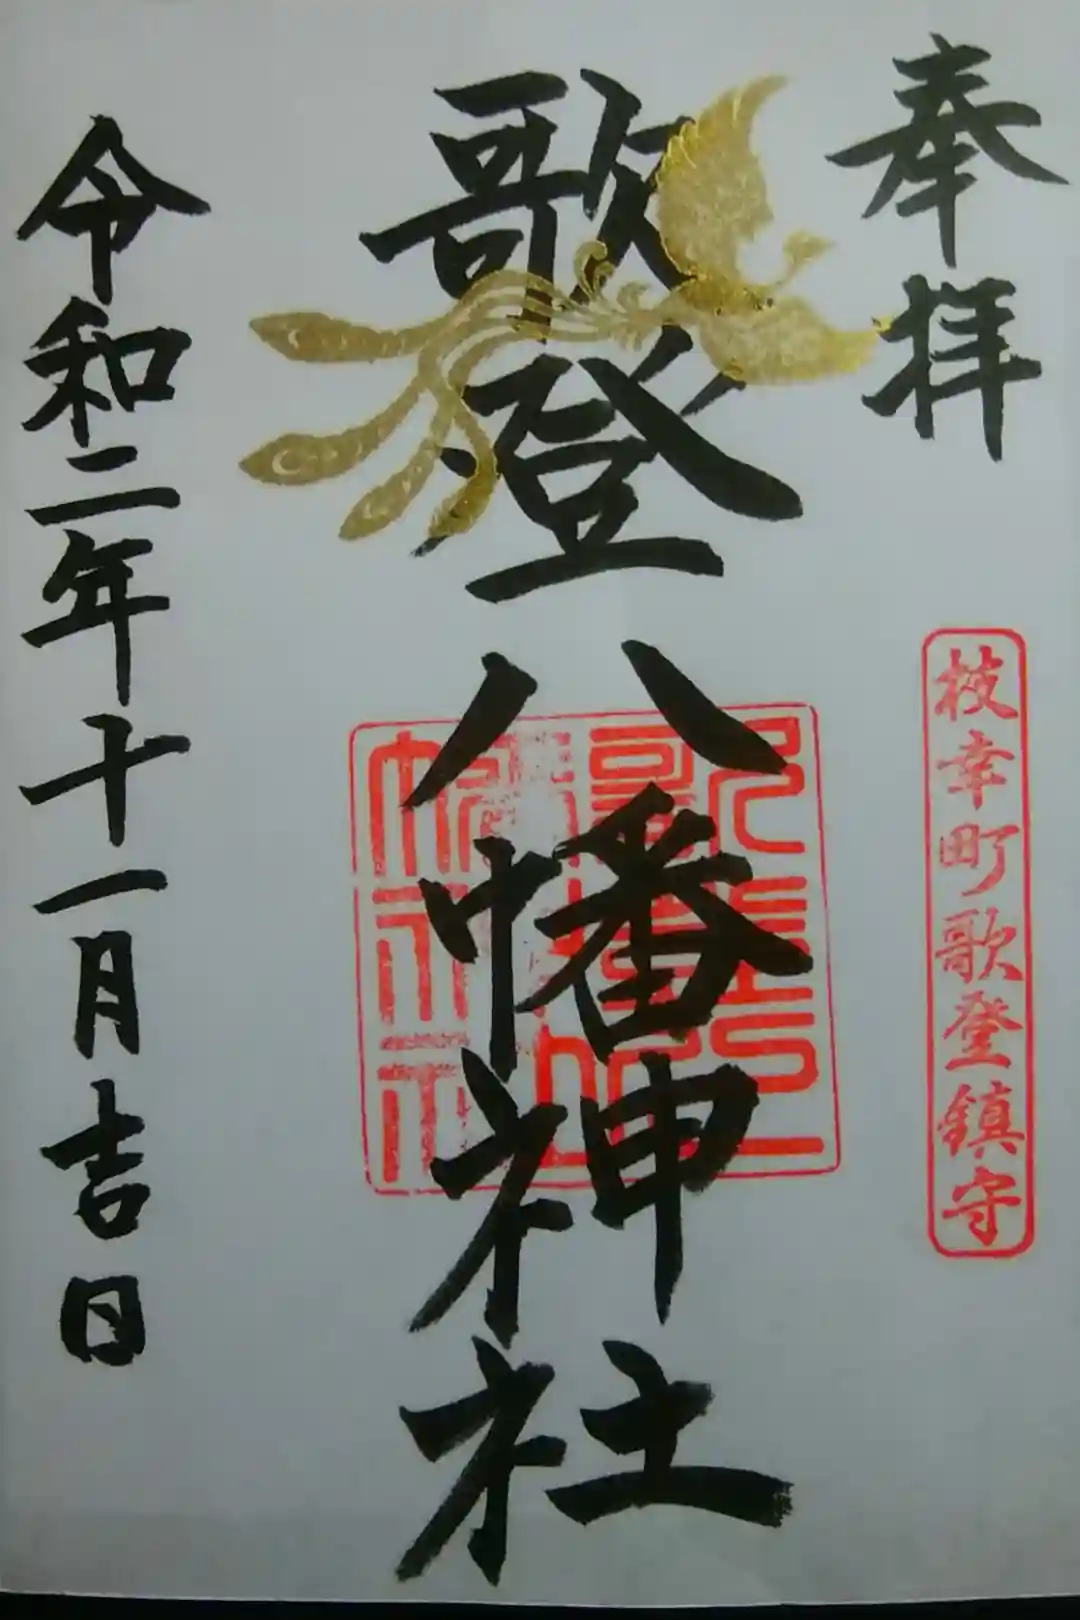 奉拝
枝幸町歌登鎮守
歌登八幡神社
令和二年十一月吉日